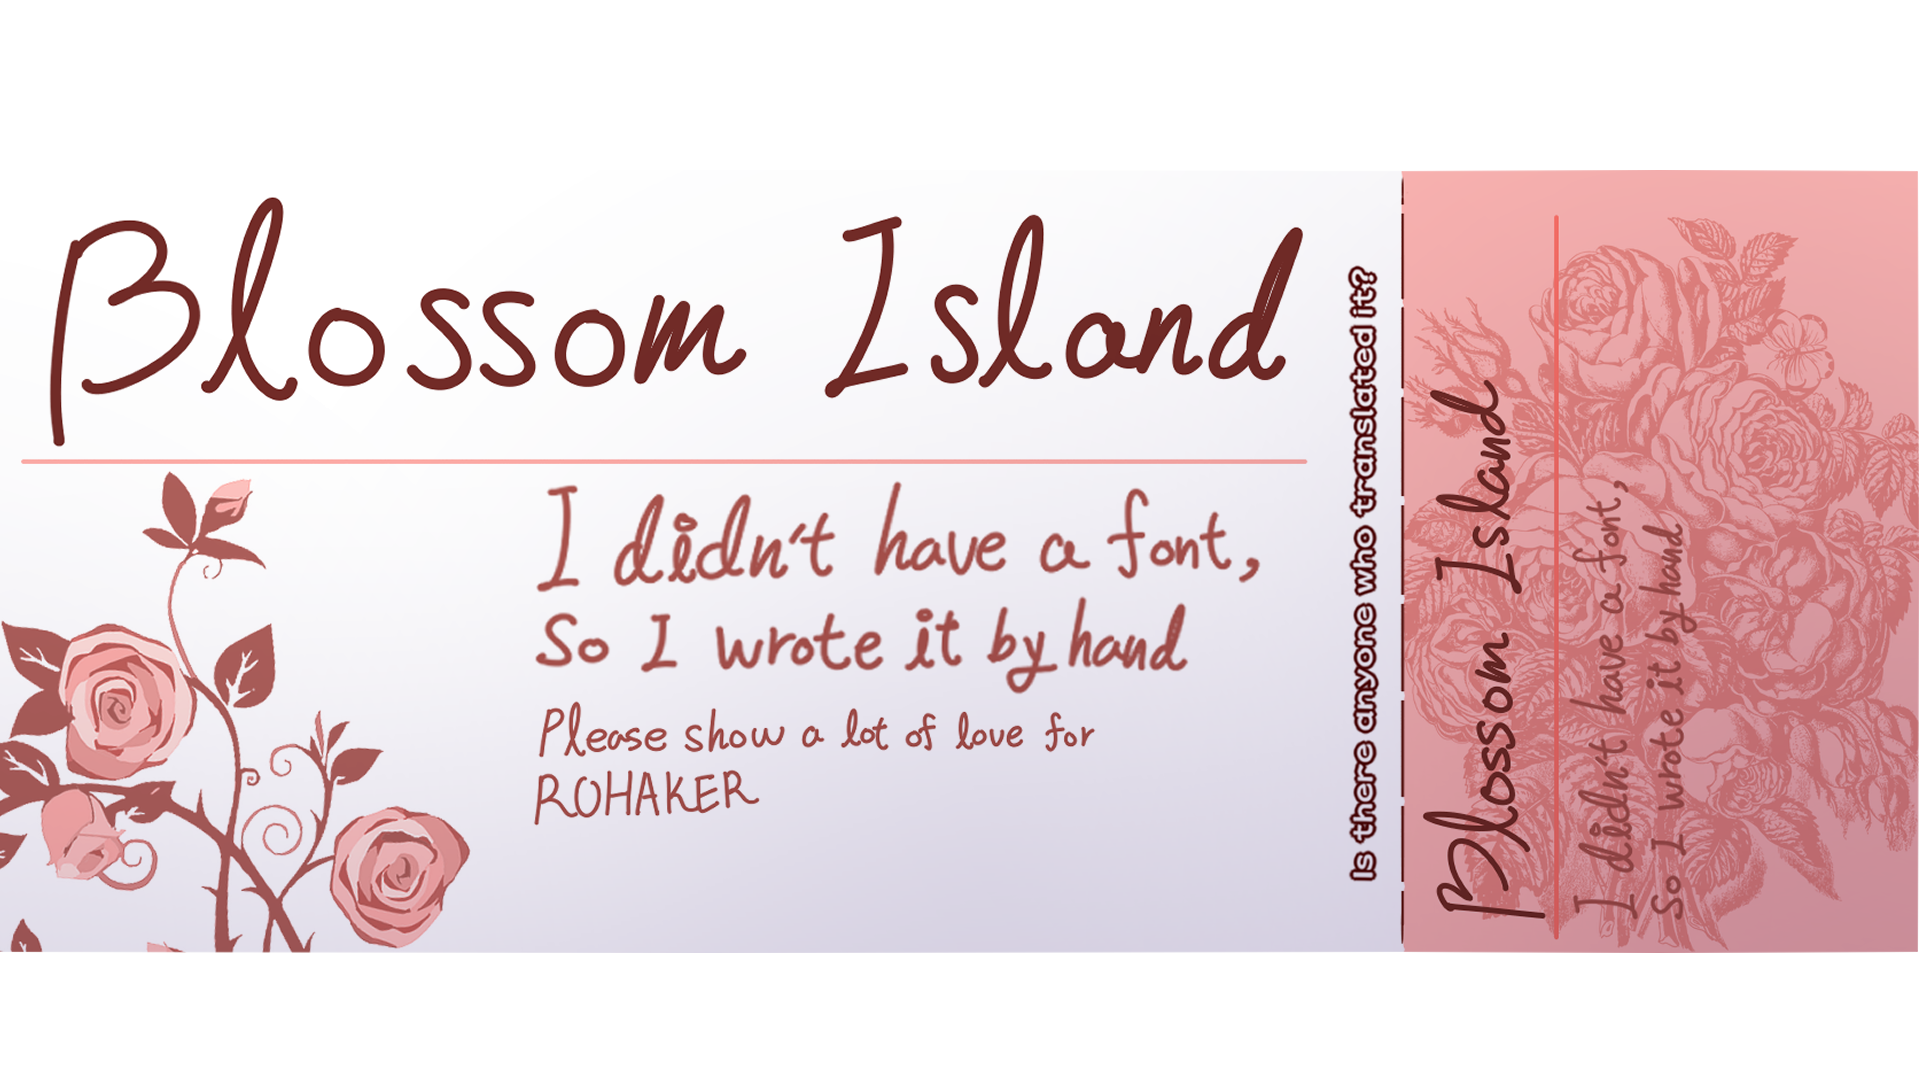 Blossom Island
I didn't have a font,
So I wrote it by hand
Please show a lot of love for
ROHAKER
Is there anyone who translated it?
Blossom Island
I didn't have a font,
So I wrote it by hand